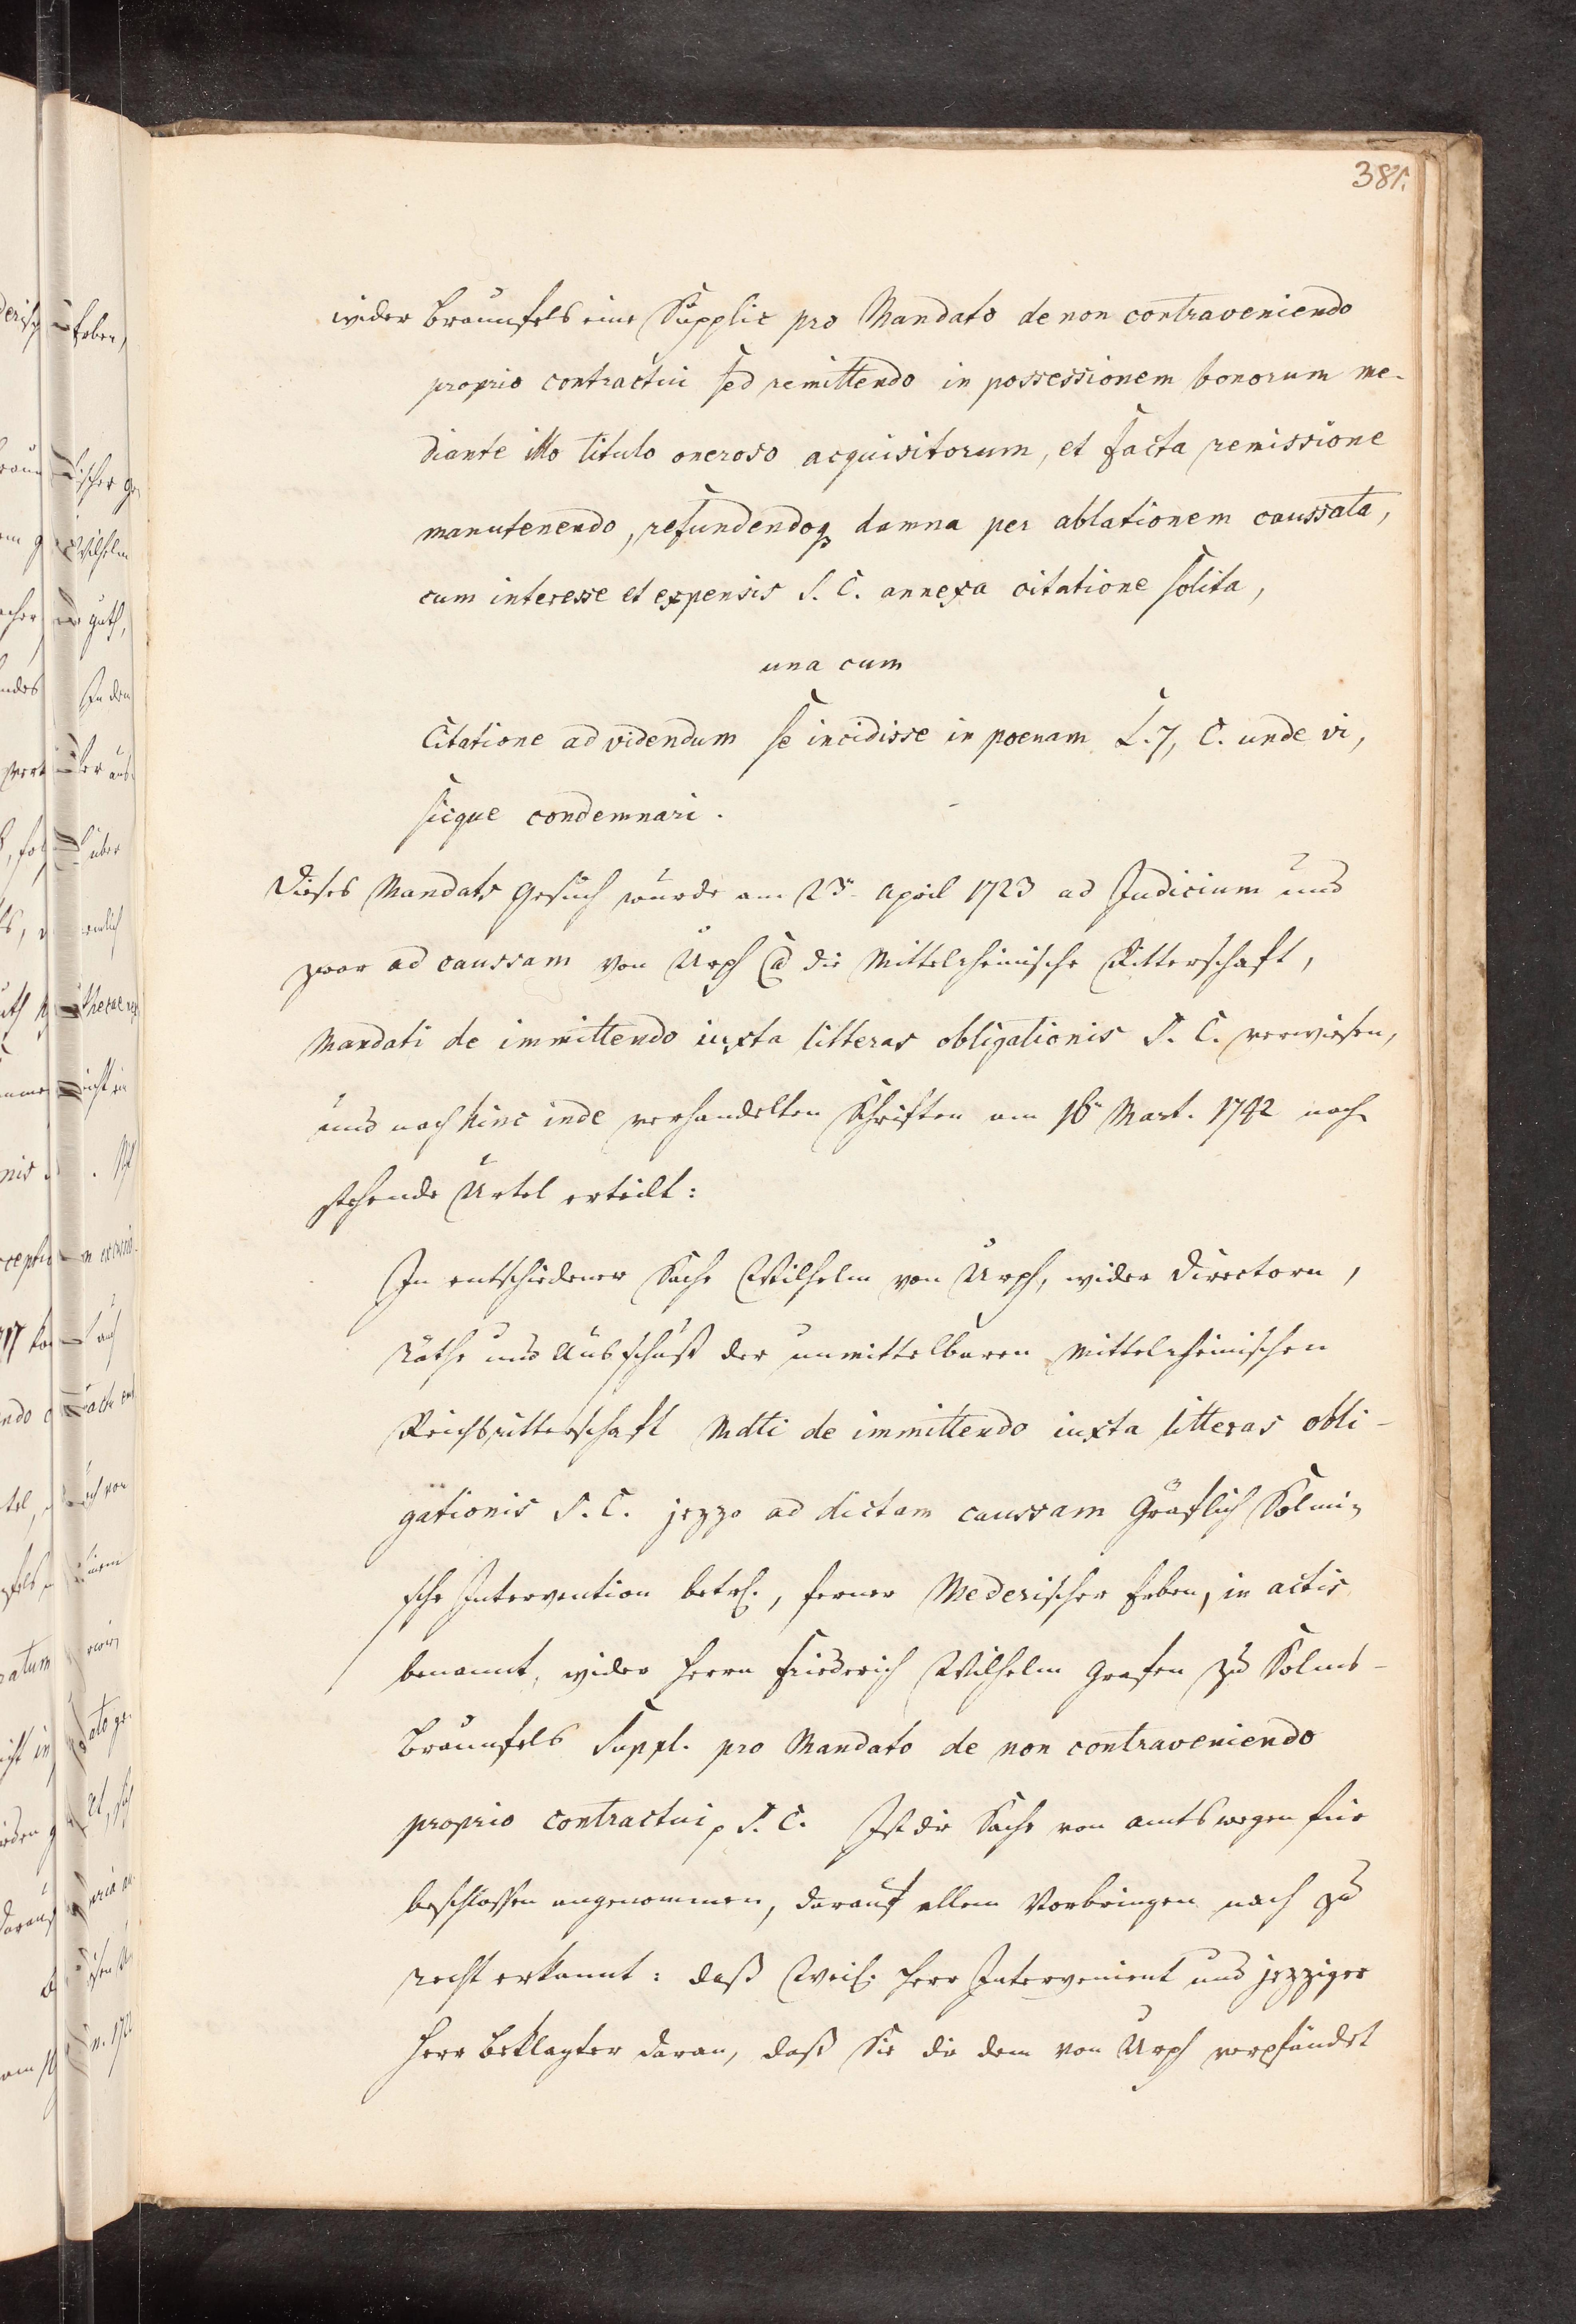 381.
wider Braunfels eine Supplic pro Mandato de non contraveniendo
proprio contractui sed remittendo in possessionem bonorum me-
diante illo titulo oneroso acquisitorum, et facta remissione
manutenendo, refundendoq damna per ablationem caussata,
cum interesse et expensis S. C. annexa citatione solita,
una cum
Citatione ad videndum se incidisse in poenam L. 7, C. unde vi,
sicque condemnari.
Dieses Mandats Gesuch wurde am 23n April 1723 ad Judicium und
zwar ad caussam von Urph Ca die Mittelrheinische Ritterschaft,
Mandati de immittendo iuxta litteras obligationis S. C. verwiesen,
und nach hinc inde verhandelten Schriften am 16n Mart. 1742 nach
stehende Urtel erteilt:
In entschiedener Sache Wilhelm von Urph, wider Directorn,
Räthe und Ausschuß der unmittelbaren Mittelrheinischen
Reichsritterschaft Mdti de immittendo iuxta litteras obli-
gationis S. C. jezzo ad dictam caussam Gräflich Solmi-
sche Intervention betr., ferner Mederischer Erben, in actis
benannt, wider Herrn Friederich Wilhelm Grafen zu Solms-
Braunfels Suppl. pro Mandato de non contraveniendo
proprio contractui p S. C. Ist die Sache von amtswegen für
beschlossen angenommen, darauf allem Vorbringen nach zu
recht erkannt: daß Weil. Herr Intervenient und jezziger
Herr Beklagter daran, daß Sie die dem von Urph verpfändet